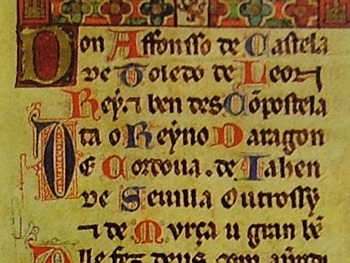 Don Affonsso de Castela
de Toledo de Leon
Rey ⁊ ben des Cõpostela
ta o Reyno Daragon
De Cordoua. de Iahen
de Seuilla Outrossy
⁊ de Murça u gran bẽ
lle fez deus com aprẽdi